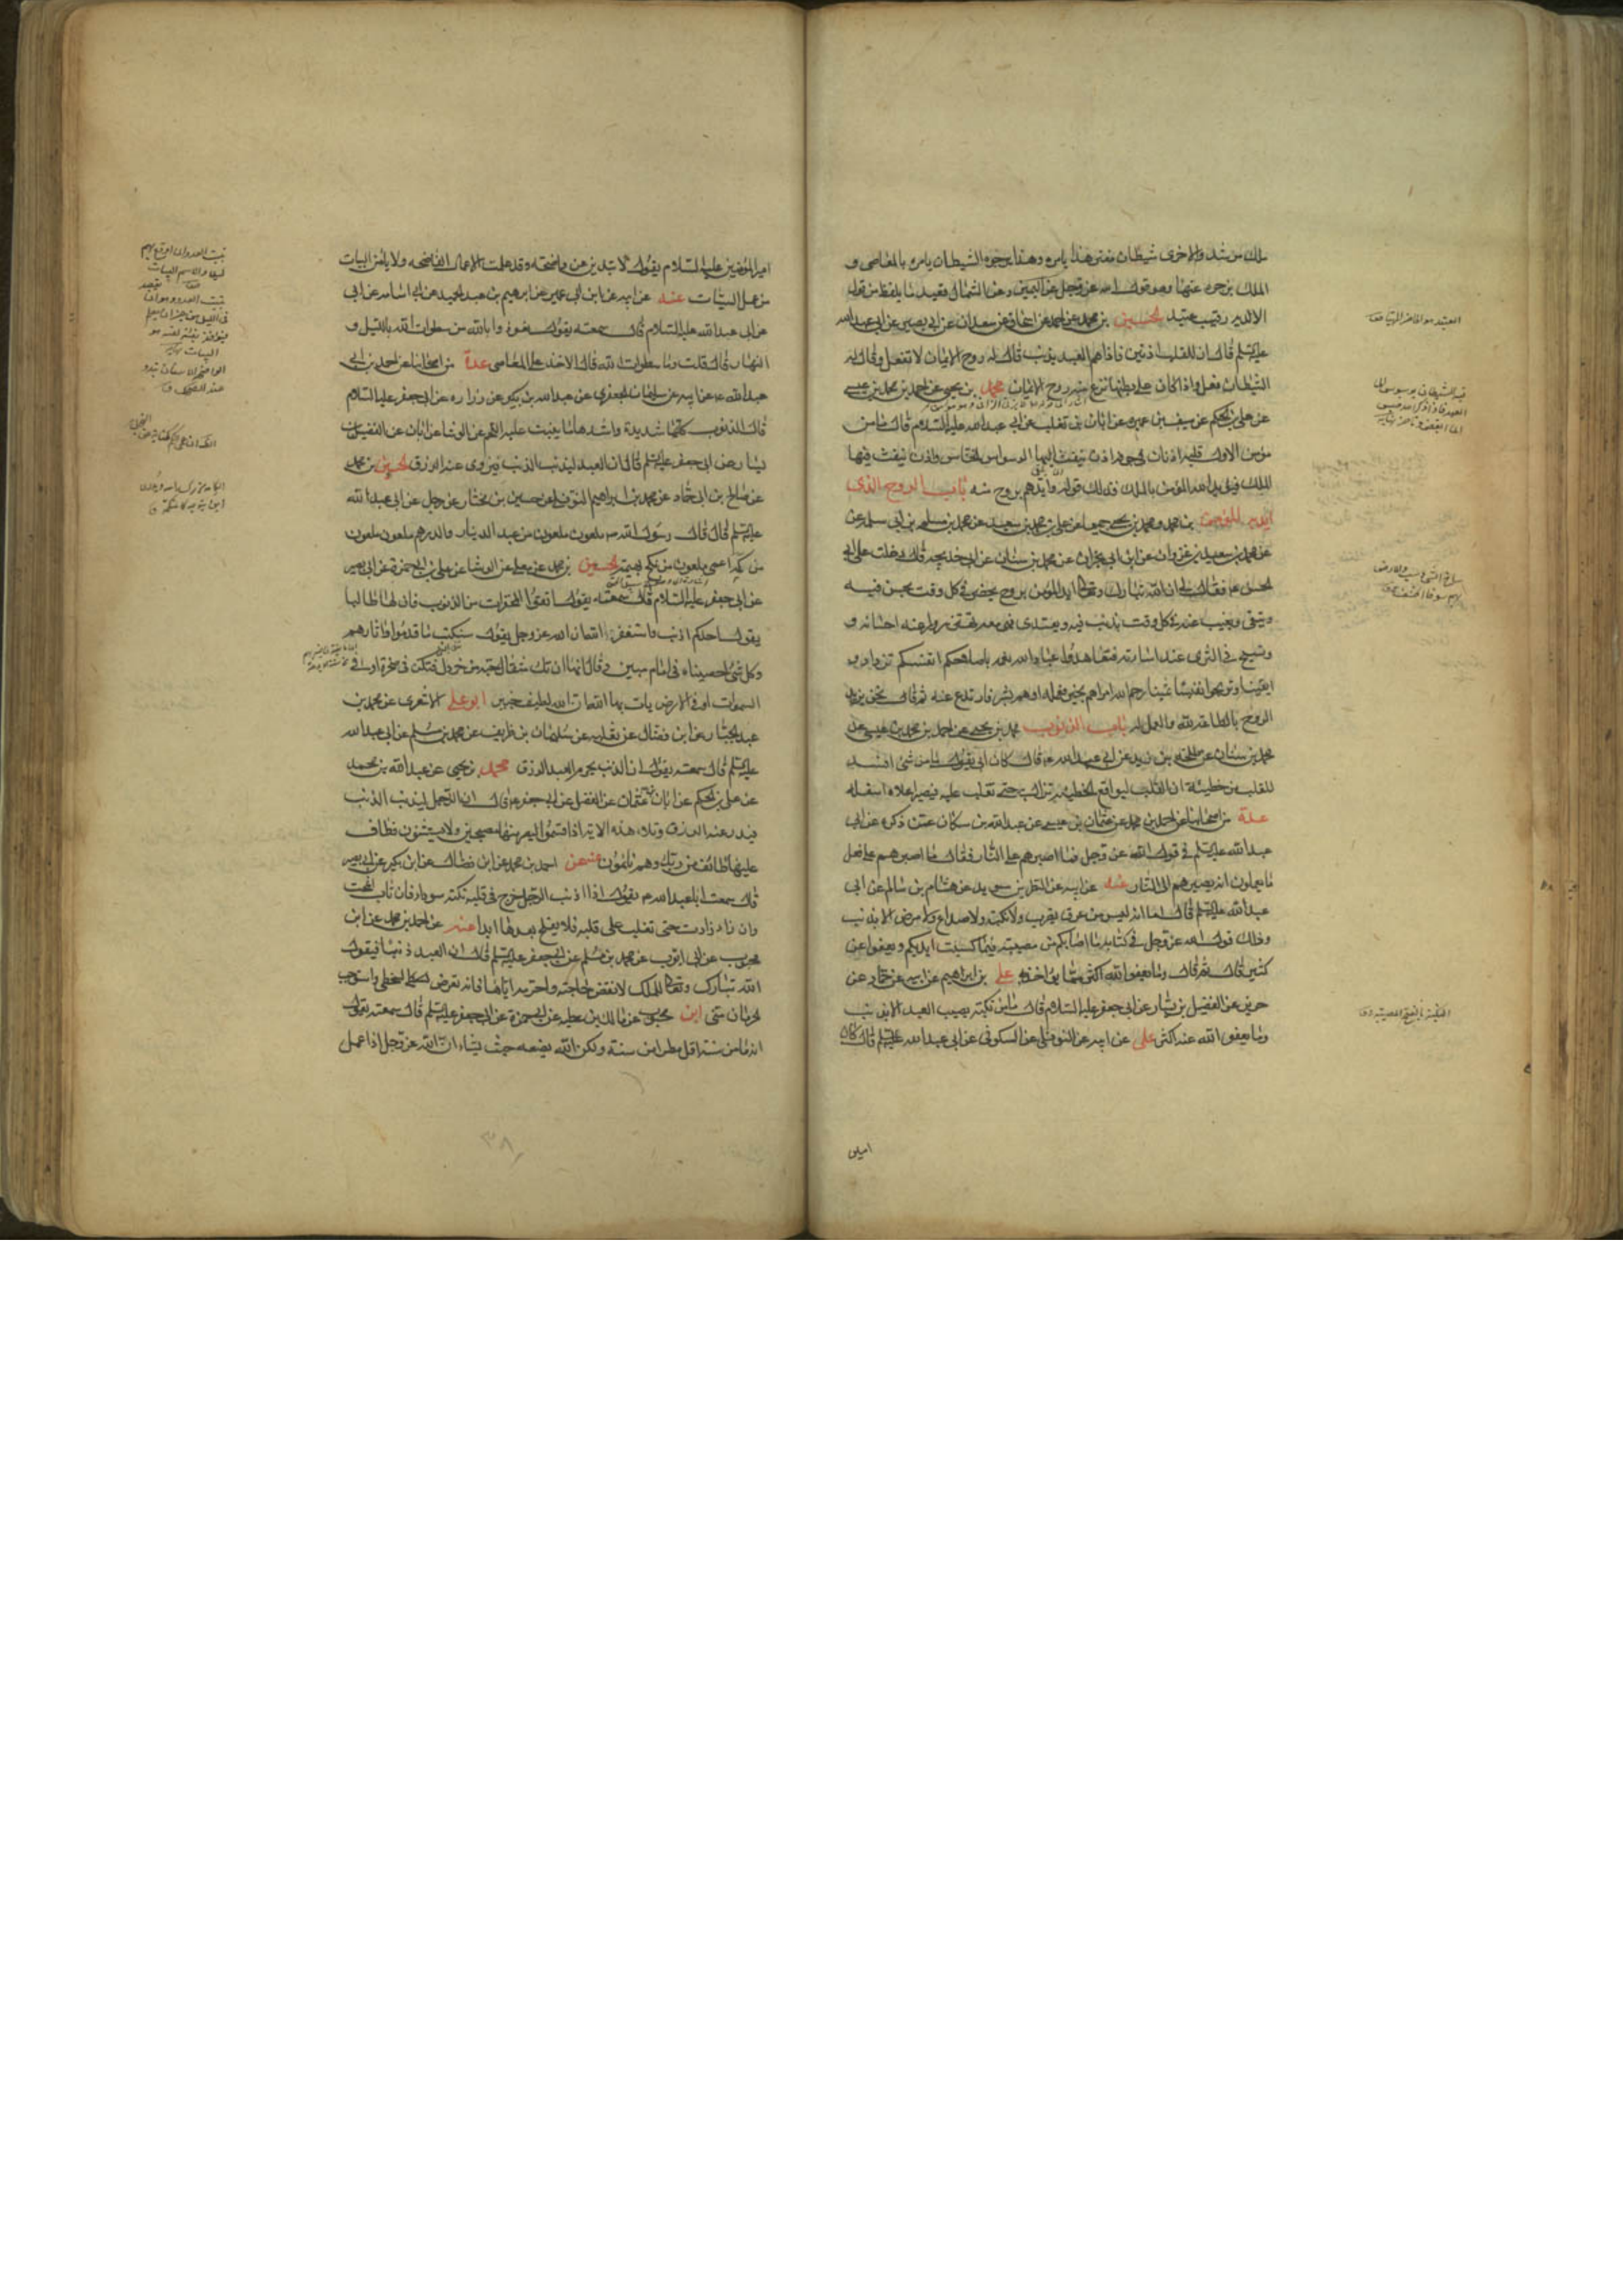 ملك مرشد والاخرى شيطان مفتن هذا يامره وهذا يزجره الشيطان يامره بالمعاصى و
الملك يزجره عنها وهو قول الله عز وجل عن اليمين وعن الشمال قعيد ما يلفظ من قول
الا لديه رقيب عتيد الحسين بن محمد عن احمد بن اسحاق عن سعدان عن ابى بصير عن ابى عبد الله
عليه السلم قال ان للقلب اذنين فاذا هم العبد بذنب قال له روح الايمان لا تفعل وقال له
الشيطان افعل واذا كان على بطنها نزع منه روح الايمان محمد بن يحيى عن احمد بن محمد بن عيسى
عن على بن الحكم عن سيف بن عميره عن ابان بن تغلب عن ابى عبد الله عليه السلام قال ما من
مؤمن الا ولقلبه اذنان فى جوفه اذن ينفث فيها الوسواس الخناس واذن ينفث فيها
الملك فيؤيد الله المؤمن بالملك فذلك قوله وايدهم بروح منه باب الروح الذى
ايد به المؤمن بن احمد ومحمد بن يحيى جميعا عن على بن محمد بن سعيد عن محمد بن مسلم بن ابى سلمه عن
محمد بن سعيد بن غزوان عن ابن ابى نجران عن محمد بن سنان عن ابى خديجه قال دخلت على ابى
الحسن ع فقال لى ان الله تبارك وتعالى ايد المؤمن بروح يحضره فى كل وقت يحسن فيه
ويتقى ويغيب عنه فى كل وقت يذنب فيه ويعتدى فهى معه تهتز سرورا عند احسانه و
وتسيخ فى الثرى عند اساءته فتعاهدوا عباد الله نعمه باصلاحكم انفسكم تزدادوا
يقينا وتربحوا نفيسا ثمينا رحم الله امرا هم بخير فعمله او هم بشر فارتدع عنه ثم قال نحن نؤيد
الروح بالطاعة لله والعمل له باب الذنوب محمد بن يحيى عن احمد بن محمد بن عيسى عن
محمد بن سنان عن طلحه بن زيد عن ابى عبد الله ع قال كان ابى يقول ما من شئ افسد
للقلب من خطيئة ان القلب ليواقع الخطيئه فما تزال به حتى تغلب عليه فيصير اعلاه اسفله
عدة من اصحابنا عن احمد بن محمد عن عثمان بن عيسى عن عبد الله بن مسكان عمن ذكره عن ابى
عبد الله عليه السلم فى قول الله عز وجل فما اصبرهم على النار فقال ما اصبرهم على فعل
ما يعملون انه يصيرهم الى النار عنه عن ابيه عن النضر بن سويد عن هشام بن سالم عن ابى
عبد الله عليه السلم قال اما انه ليس من عرق يضرب ولا نكبة ولا صداع ولا مرض الا بذنب
وذلك قول الله عز وجل فى كتابه ما اصابكم من مصيبة فبما كسبت ايديكم ويعفوا عن
كثير قال ثم قال وما يعفوا الله اكثر مما يؤاخذ به على بن ابراهيم عن ابيه عن حماد عن
حريز عن الفضيل بن يسار عن ابى جعفر عليه السلام قال ما من نكبة يصيب العبد الا بذنب
وما يعفوا الله عنه اكثر على عن ابيه عن النوفلى عن السكونى عن ابى عبد الله عليه السلم قال كان
امير
امير المؤمنين عليه السلام يقول لا تبدين عن واضحه وقد عملت الاعمال الفاضحه ولا يامن البيات
من عمل السيئات عنه عن ابيه عن ابن ابى عمير عن ابرهيم بن عبد الحميد عن ابى اسامه عن ابى
عن ابى عبد الله عليه السلام قال سمعته يقول تعوذوا بالله من سطوات الله بالليل و
النهار قال قلت وما سطوات الله قال الاخذ على المعاصى عدة من اصحابنا عن احمد بن ابى
عبد الله عن ابيه عن سليمان الجعفرى عن عبد الله بن بكير عن زراره عن ابى جعفر عليه السلام
قال الذنوب كلها شديدة واشدها ما ينبت عليه اللحم عن الوشا عن ابان عن الفضيل بن
يسار عن ابى جعفر عليه السلم قال ان العبد ليذنب الذنب فيزوى عنه الرزق الحسين بن محمد
عن صالح بن ابى حماد عن محمد بن ابراهيم النوفلى عن حسين بن مختار عن رجل عن ابى عبد الله
عليه السلم قال قال رسول الله ص ملعون ملعون من عبد الدينار والدرهم ملعون ملعون
من كمه اعمى ملعون من نكح بهيمة الحسين بن محمد عن معلى عن الوشا عن على بن ابى حمزة عن ابى بصير
عن ابى جعفر عليه السلام قال سمعته يقول اتقوا المحقرات من الذنوب فان لها طالبا
يقول احدكم اذنب واستغفر الله ان الله عز وجل يقول سنكتب ما قدموا واثارهم
وكل شئ احصيناه فى امام مبين وقال انها ان تك مثقال حبة من خردل فتكن فى صخرة او فى
السموات او فى الارض يات بها الله ان الله لطيف خبير ابو على الاشعرى عن محمد بن
عبد الجبار عن ابن فضال عن ثعلبه عن سليمان بن طريف عن محمد بن مسلم عن ابى عبد الله
عليه السلم قال سمعته يقول ان الذنب يحرم العبد الرزق محمد بن يحيى عن عبد الله بن محمد
عن على بن الحكم عن ابان بن عثمان عن الفضيل عن ابى جعفر ع قال ان الرجل ليذنب الذنب
فيدرء عنه الرزق وتلا هذه الاية اذ اقسموا ليصرمنها مصبحين ولا يستثنون فطاف
عليها طائف من ربك وهم نائمون عنه عن احمد بن محمد عن ابن فضال عن ابن بكير عن ابى بصير
قال سمعت ابا عبد الله ع يقول اذا اذنب الرجل خرج فى قلبه نكتة سوداء فان تاب انمحت
وان زاد زادت حتى تغلب على قلبه فلا يفلح بعدها ابدا عنه عن احمد بن محمد عن ابن
محبوب عن ابى ايوب عن محمد بن مسلم عن ابى جعفر عليه السلم قال ان العبد ذنبا فيقول
الله تبارك وتعالى للملك لا تقض حاجته واحرمه اياها فانه تعرض لسخطى واستوجب
الحرمان منى ابن محبوب عن مالك بن عطيه عن ابى حمزة عن ابى جعفر عليه السلم قال سمعته يقول
انه ما من سنة اقل مطرا من سنة ولكن الله يضعه حيث يشاء ان الله عز وجل اذا عمل
٣٨